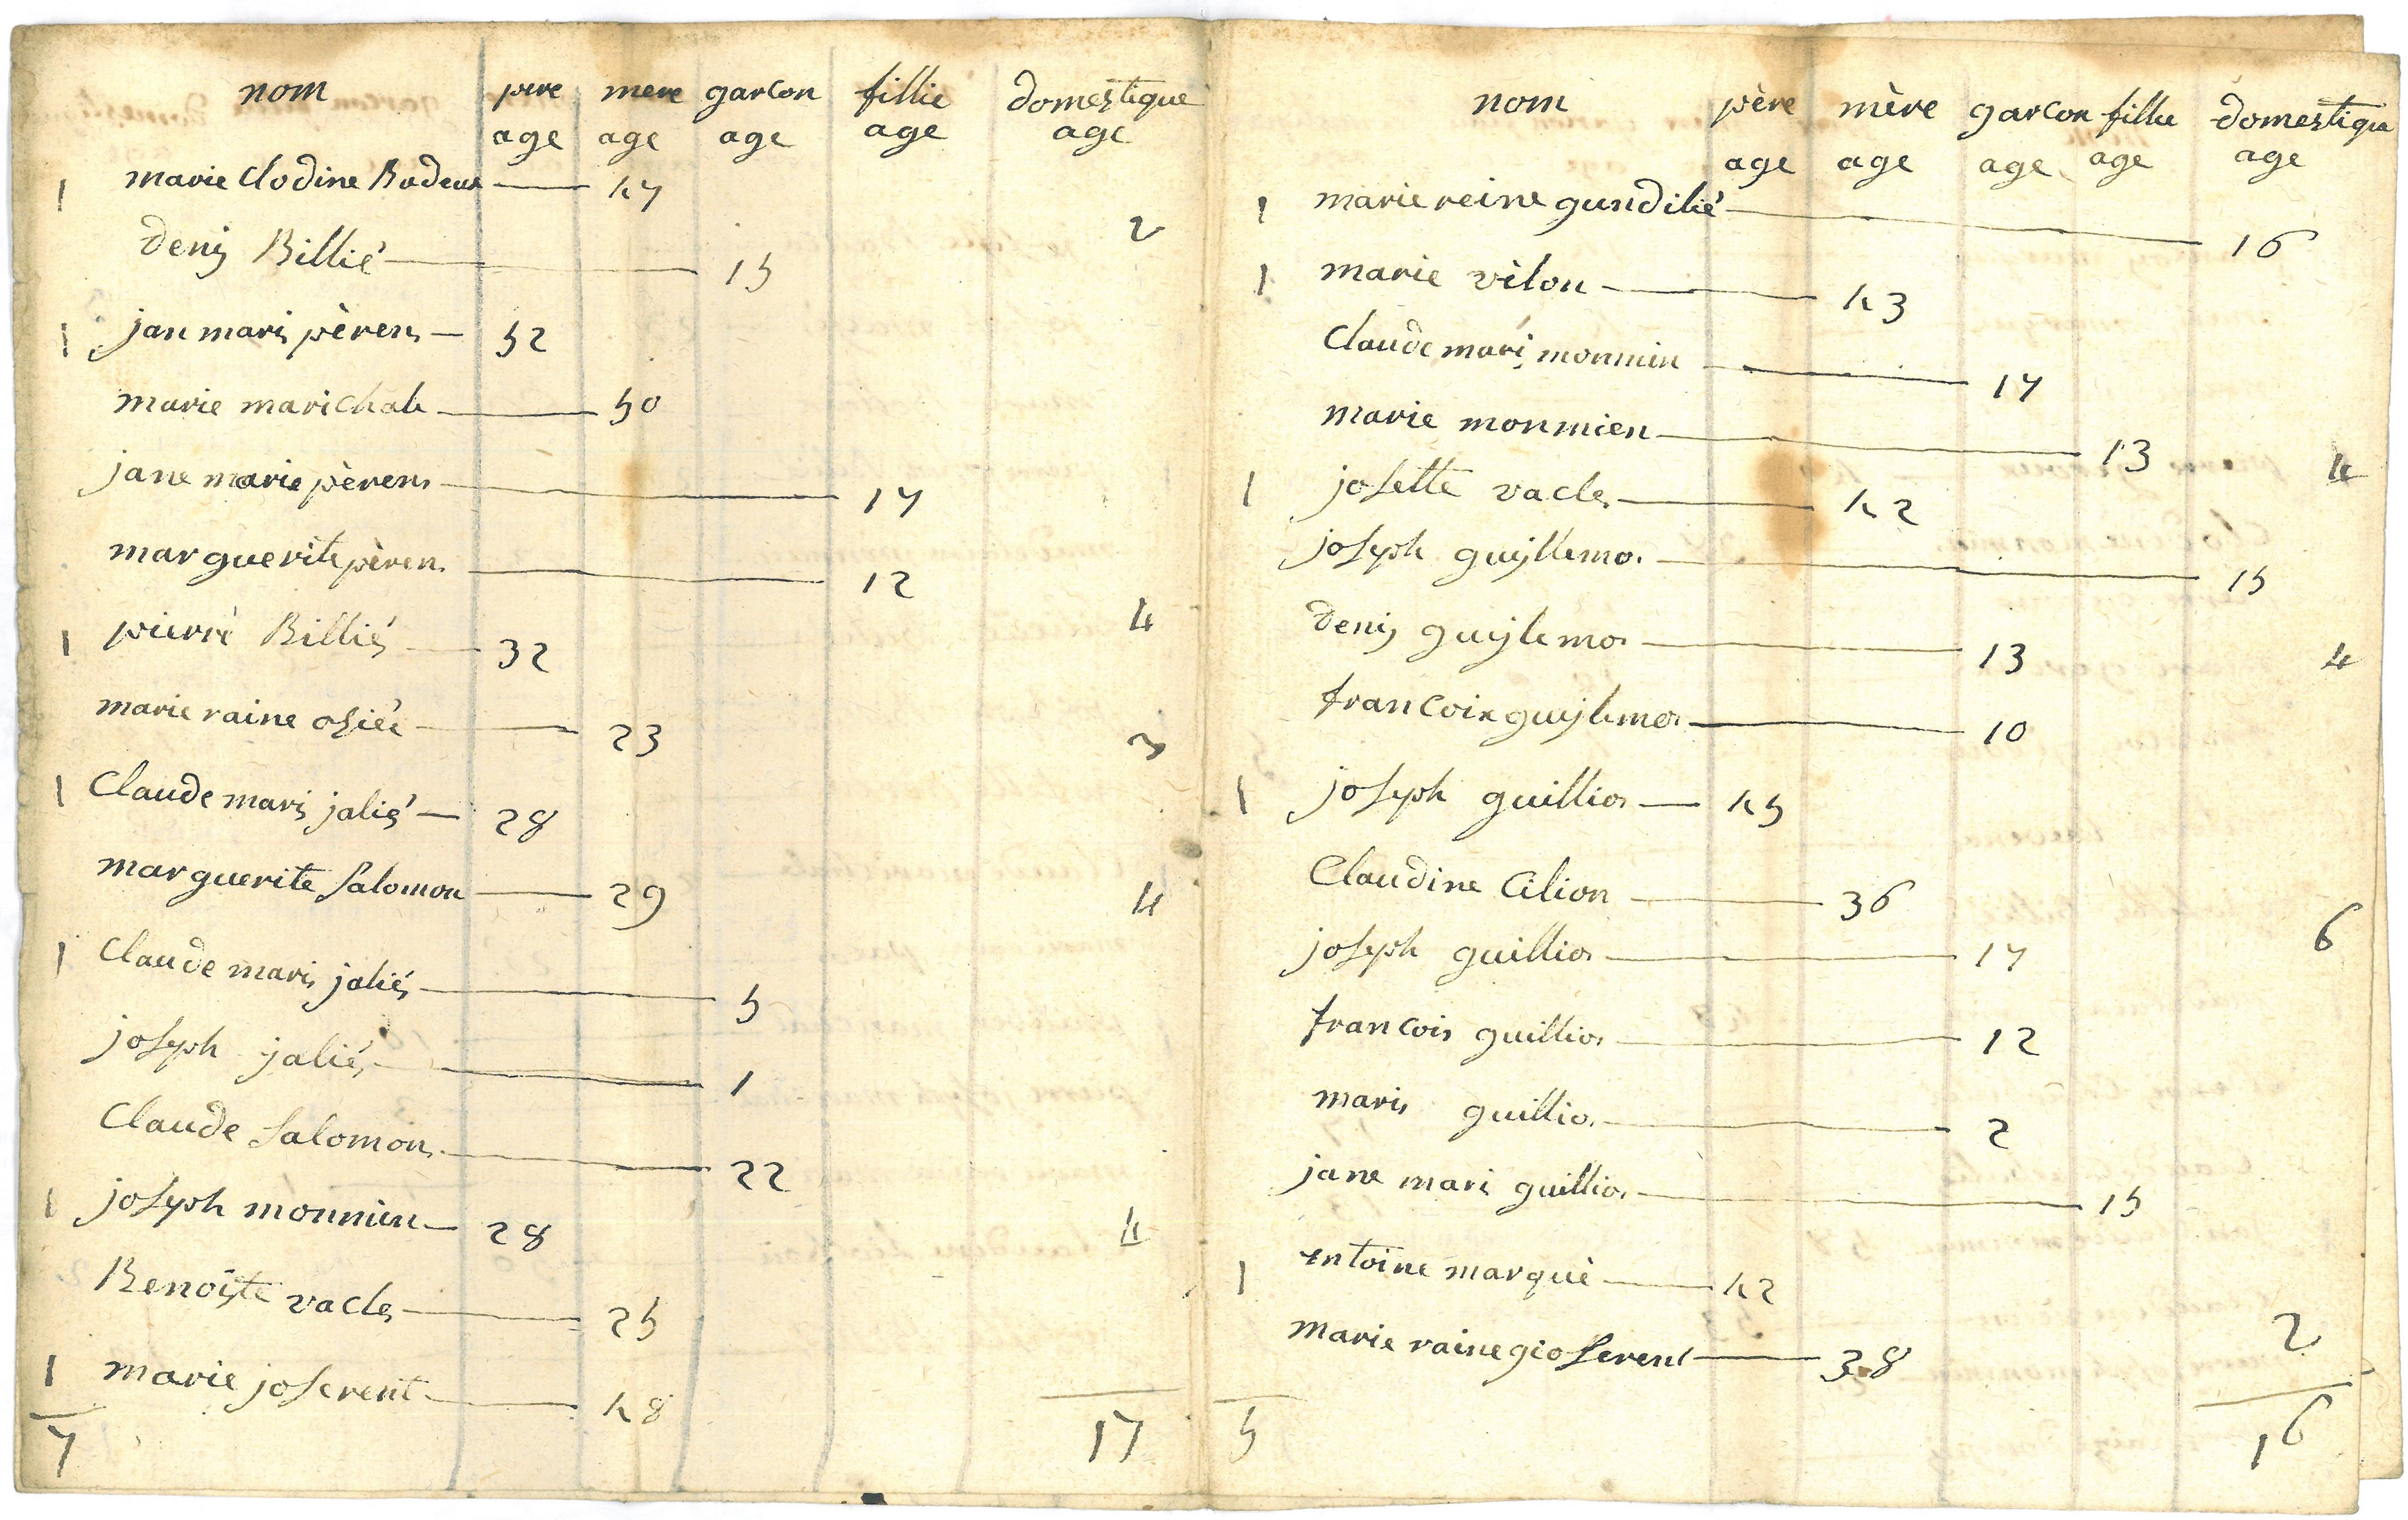 nom père mere garcon fillie domestique
age age age age age
1 marie Clodine Badeux 47
2
denis Billié 15
1 jan maris pèren 52
marie marichale 50
jane marie pèren 17
marguerite pèren 12
4
1 pierre Billiés 32
marie raine 23
3
1 Claude maris jalié 28
marguerite salomon 29
4
1 Claude maris jaliés 5
joseph jaliés 1
Claude salomon 22
1 joseph monnien 28
4
Benoiste vacles 25
1 marie joserent 48
7 17
nom père mère garcon fillie domestique
age age age age age
1 marie reine gundilié 16
1 marie vilon 43
Claude maris monmien 17
marie monmien 13
4
1 josette vacles 42
joseph guyllemos 15
denis guylemos 13
4
francoix guylemos 10
1 joseph guillios 45
Claudine Cilion 36
6
joseph guillios 17
francois guillios 12
maris guillios 2
jane mari guillios 15
1 entoine marquè 42
2
marie raine gioserent 38
5 16